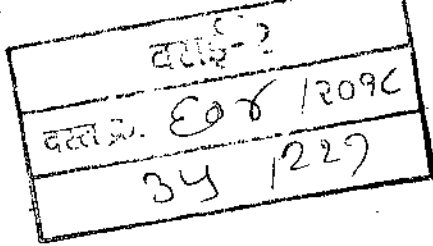 वसई-२
दस्त क्र. ६०४ /२०१८
३५ /२२१